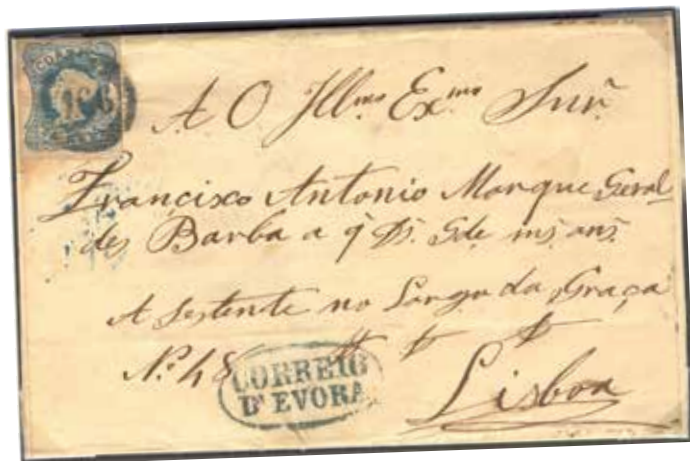 CORR
166
A O Illmo Exmo Snr.
Francisco Antonio Marque Geral-
des Barba a q Ds. Gde ms. ans.
A Sistente no Largo da Graça
No. 48
CORREIO
D'EVORA
Lisboa